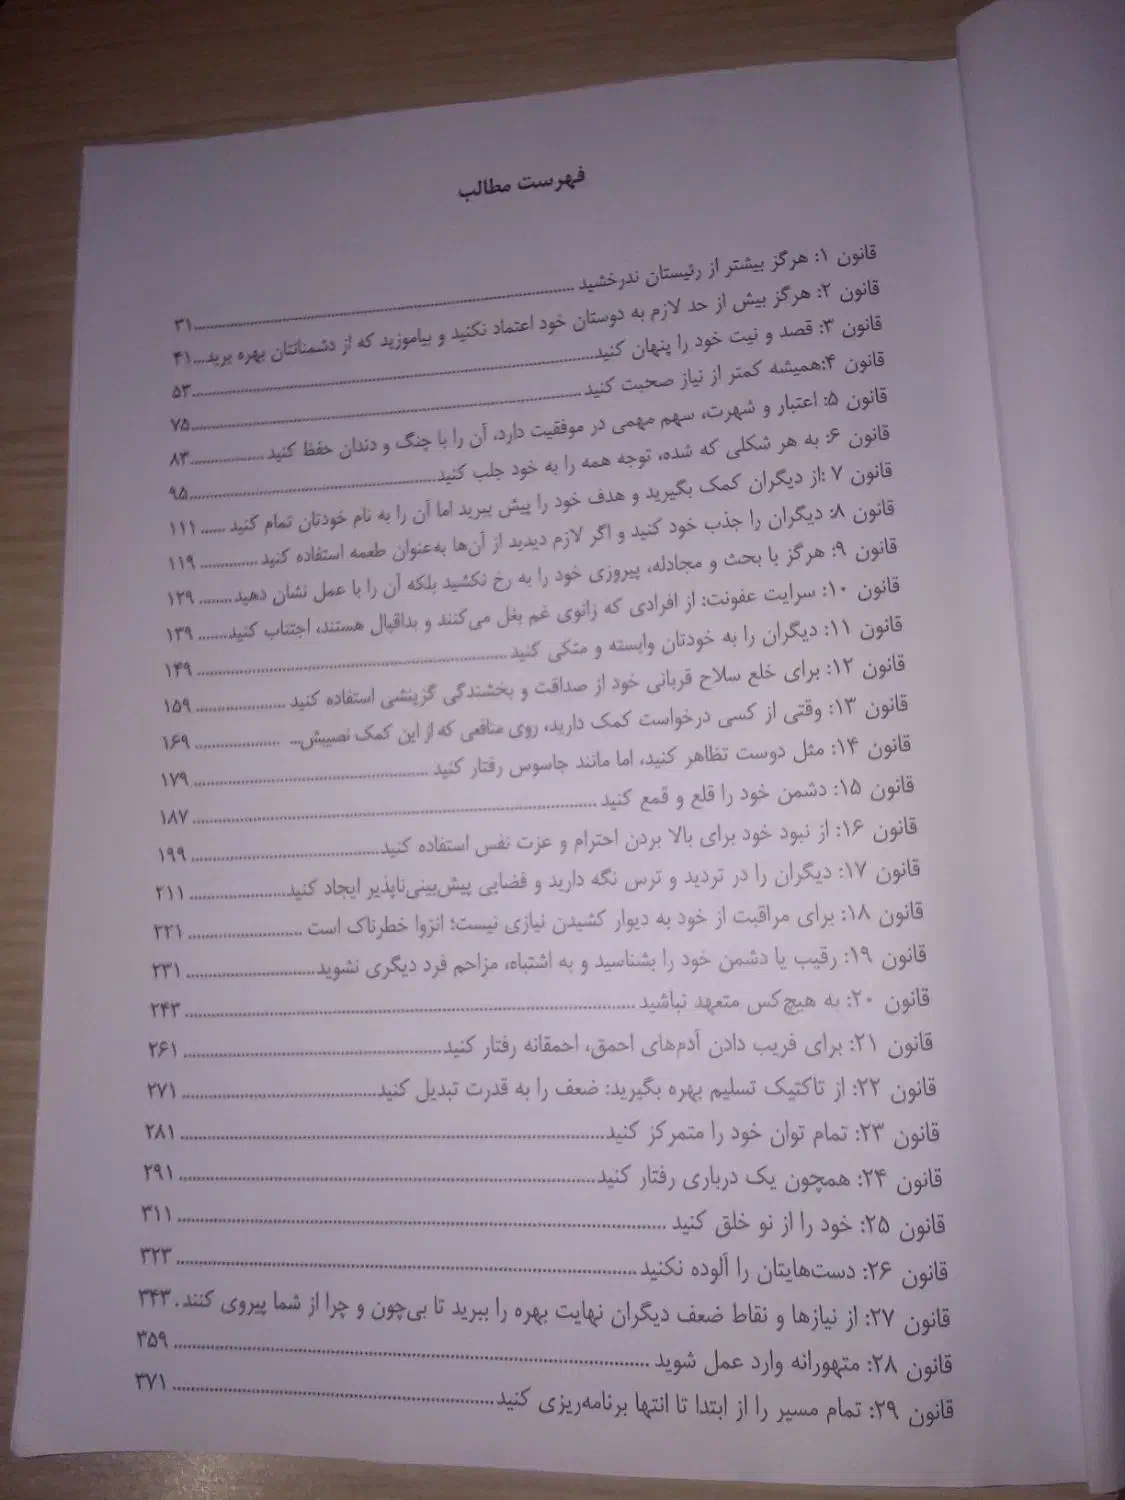 فهرست مطالب
قانون ۱: هرگز بیشتر از رئیستان ندرخشید ........ ۳۱
قانون ۲: هرگز بیش از حد لازم به دوستان خود اعتماد نکنید و بیاموزید که از دشمنانتان بهره برید... ۴۱
قانون ۳: قصد و نیت خود را پنهان کنید........ ۵۳
قانون ۴:همیشه کمتر از نیاز صحبت کنید ........ ۷۵
قانون ۵: اعتبار و شهرت، سهم مهمی در موفقیت دارد، آن را با چنگ و دندان حفظ کنید ........ ۸۳
قانون ۶: به هر شکلی که شده، توجه همه را به خود جلب کنید........ ۹۵
قانون ۷ :از دیگران کمک بگیرید و هدف خود را پیش ببرید اما آن را به نام خودتان تمام کنید ...... ۱۱۱
قانون ۸: دیگران را جذب خود کنید و اگر لازم دیدید از آن‌ها به‌عنوان طعمه استفاده کنید ........ ۱۱۹
قانون ۹: هرگز با بحث و مجادله، پیروزی خود را به رخ نکشید بلکه آن را با عمل نشان دهید........ ۱۲۹
قانون ۱۰: سرایت عفونت: از افرادی که زانوی غم بغل می‌کنند و بداقبال هستند، اجتناب کنید....... ۱۳۹
قانون ۱۱: دیگران را به خودتان وابسته و متکی کنید........ ۱۴۹
قانون ۱۲: برای خلع سلاح قربانی خود از صداقت و بخشندگی گزینشی استفاده کنید ........ ۱۵۹
قانون ۱۳: وقتی از کسی درخواست کمک دارید، روی منافعی که از این کمک نصیبش... ........ ۱۶۹
قانون ۱۴: مثل دوست تظاهر کنید، اما مانند جاسوس رفتار کنید ........ ۱۷۹
قانون ۱۵: دشمن خود را قلع و قمع کنید ........ ۱۸۷
قانون ۱۶: از نبود خود برای بالا بردن احترام و عزت نفس استفاده کنید........ ۱۹۹
قانون ۱۷: دیگران را در تردید و ترس نگه دارید و فضایی پیش‌بینی‌ناپذیر ایجاد کنید........ ۲۱۱
قانون ۱۸: برای مراقبت از خود به دیوار کشیدن نیازی نیست؛ انزوا خطرناک است ........ ۲۲۱
قانون ۱۹: رقیب یا دشمن خود را بشناسید و به اشتباه، مزاحم فرد دیگری نشوید........ ۲۳۱
قانون ۲۰: به هیچ‌کس متعهد نباشید ........ ۲۴۳
قانون ۲۱: برای فریب دادن آدم‌های احمق، احمقانه رفتار کنید........ ۲۶۱
قانون ۲۲: از تاکتیک تسلیم بهره بگیرید: ضعف را به قدرت تبدیل کنید........ ۲۷۱
قانون ۲۳: تمام توان خود را متمرکز کنید........ ۲۸۱
قانون ۲۴: همچون یک درباری رفتار کنید........ ۲۹۱
قانون ۲۵: خود را از نو خلق کنید ........ ۳۱۱
قانون ۲۶: دست‌هایتان را آلوده نکنید ........ ۳۲۳
قانون ۲۷: از نیازها و نقاط ضعف دیگران نهایت بهره را ببرید تا بی‌چون و چرا از شما پیروی کنند . ۳۴۳
قانون ۲۸: متهورانه وارد عمل شوید ........ ۳۵۹
قانون ۲۹: تمام مسیر را از ابتدا تا انتها برنامه‌ریزی کنید........ ۳۷۱